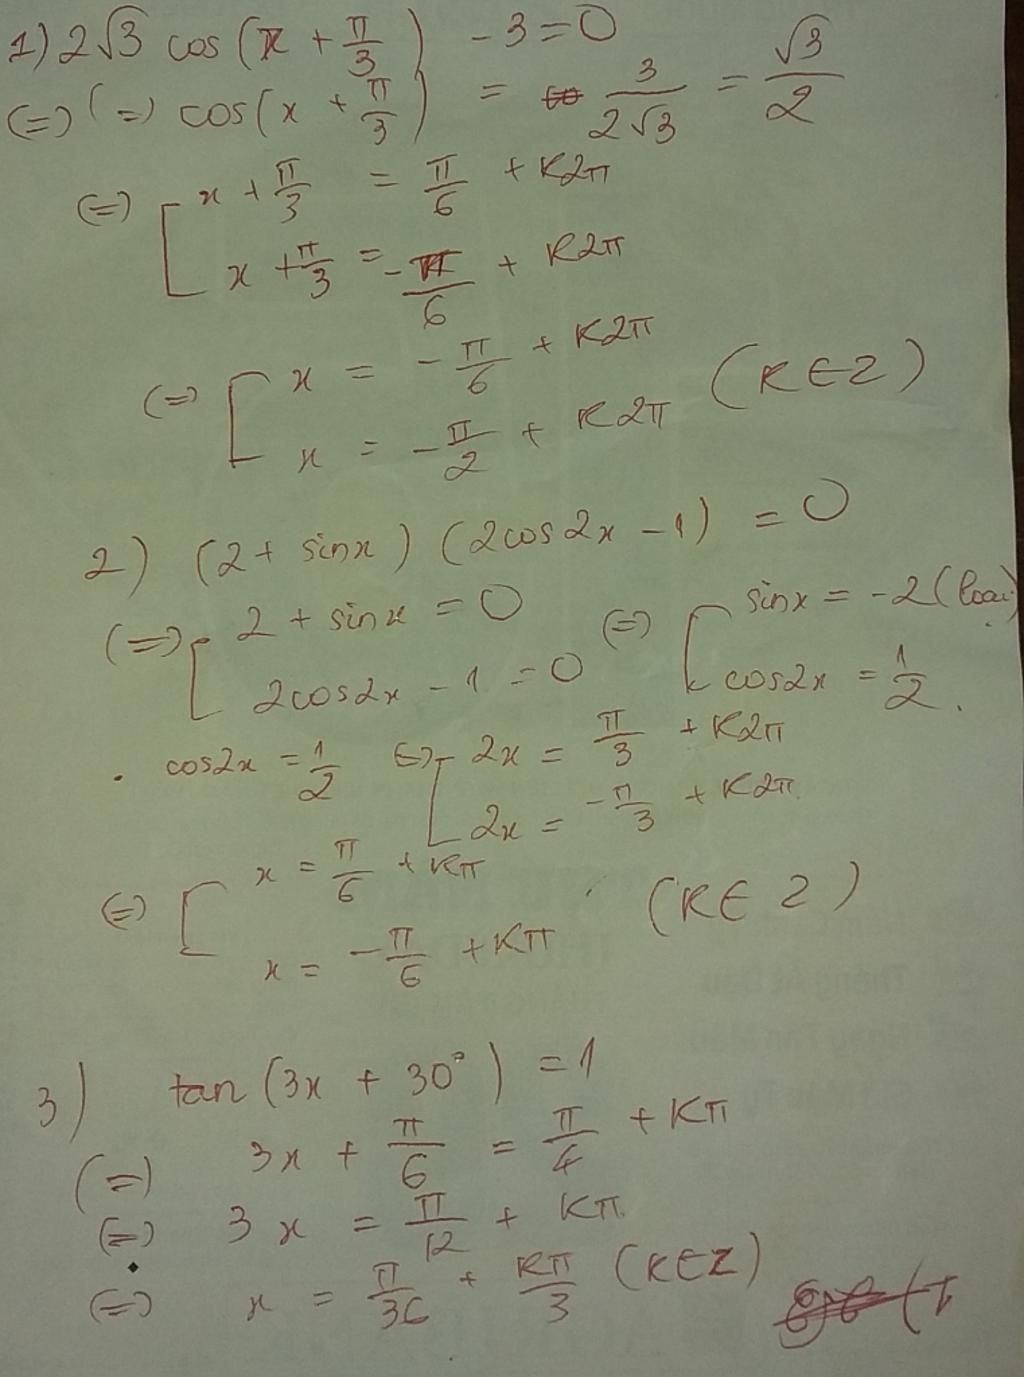 1) 2√3 cos (x + π/3) - 3 = 0
(=) (=) cos(x + π/3) = 3/2√3 = √3/2
(=) [ x + π/3 = π/6 + K2π
x + π/3 = -π/6 + K2π
(=) [ x = -π/6 + K2π
x = -π/2 + K2π (K∈Z)
2) (2 + sinx) (2cos2x - 1) = 0
(=) [ 2 + sinx = 0 (=) [ sinx = -2 (loại)
2cos2x - 1 = 0 cos2x = 1/2.
. cos2x = 1/2 (=) [ 2x = π/3 + K2π
2x = -π/3 + K2π
(=) [ x = π/6 + Kπ
x = -π/6 + Kπ (K∈Z)
3) tan (3x + 30°) = 1
(=) 3x + π/6 = π/4 + Kπ
(=) 3x = π/12 + Kπ
(=) x = π/36 + Kπ/3 (K∈Z)